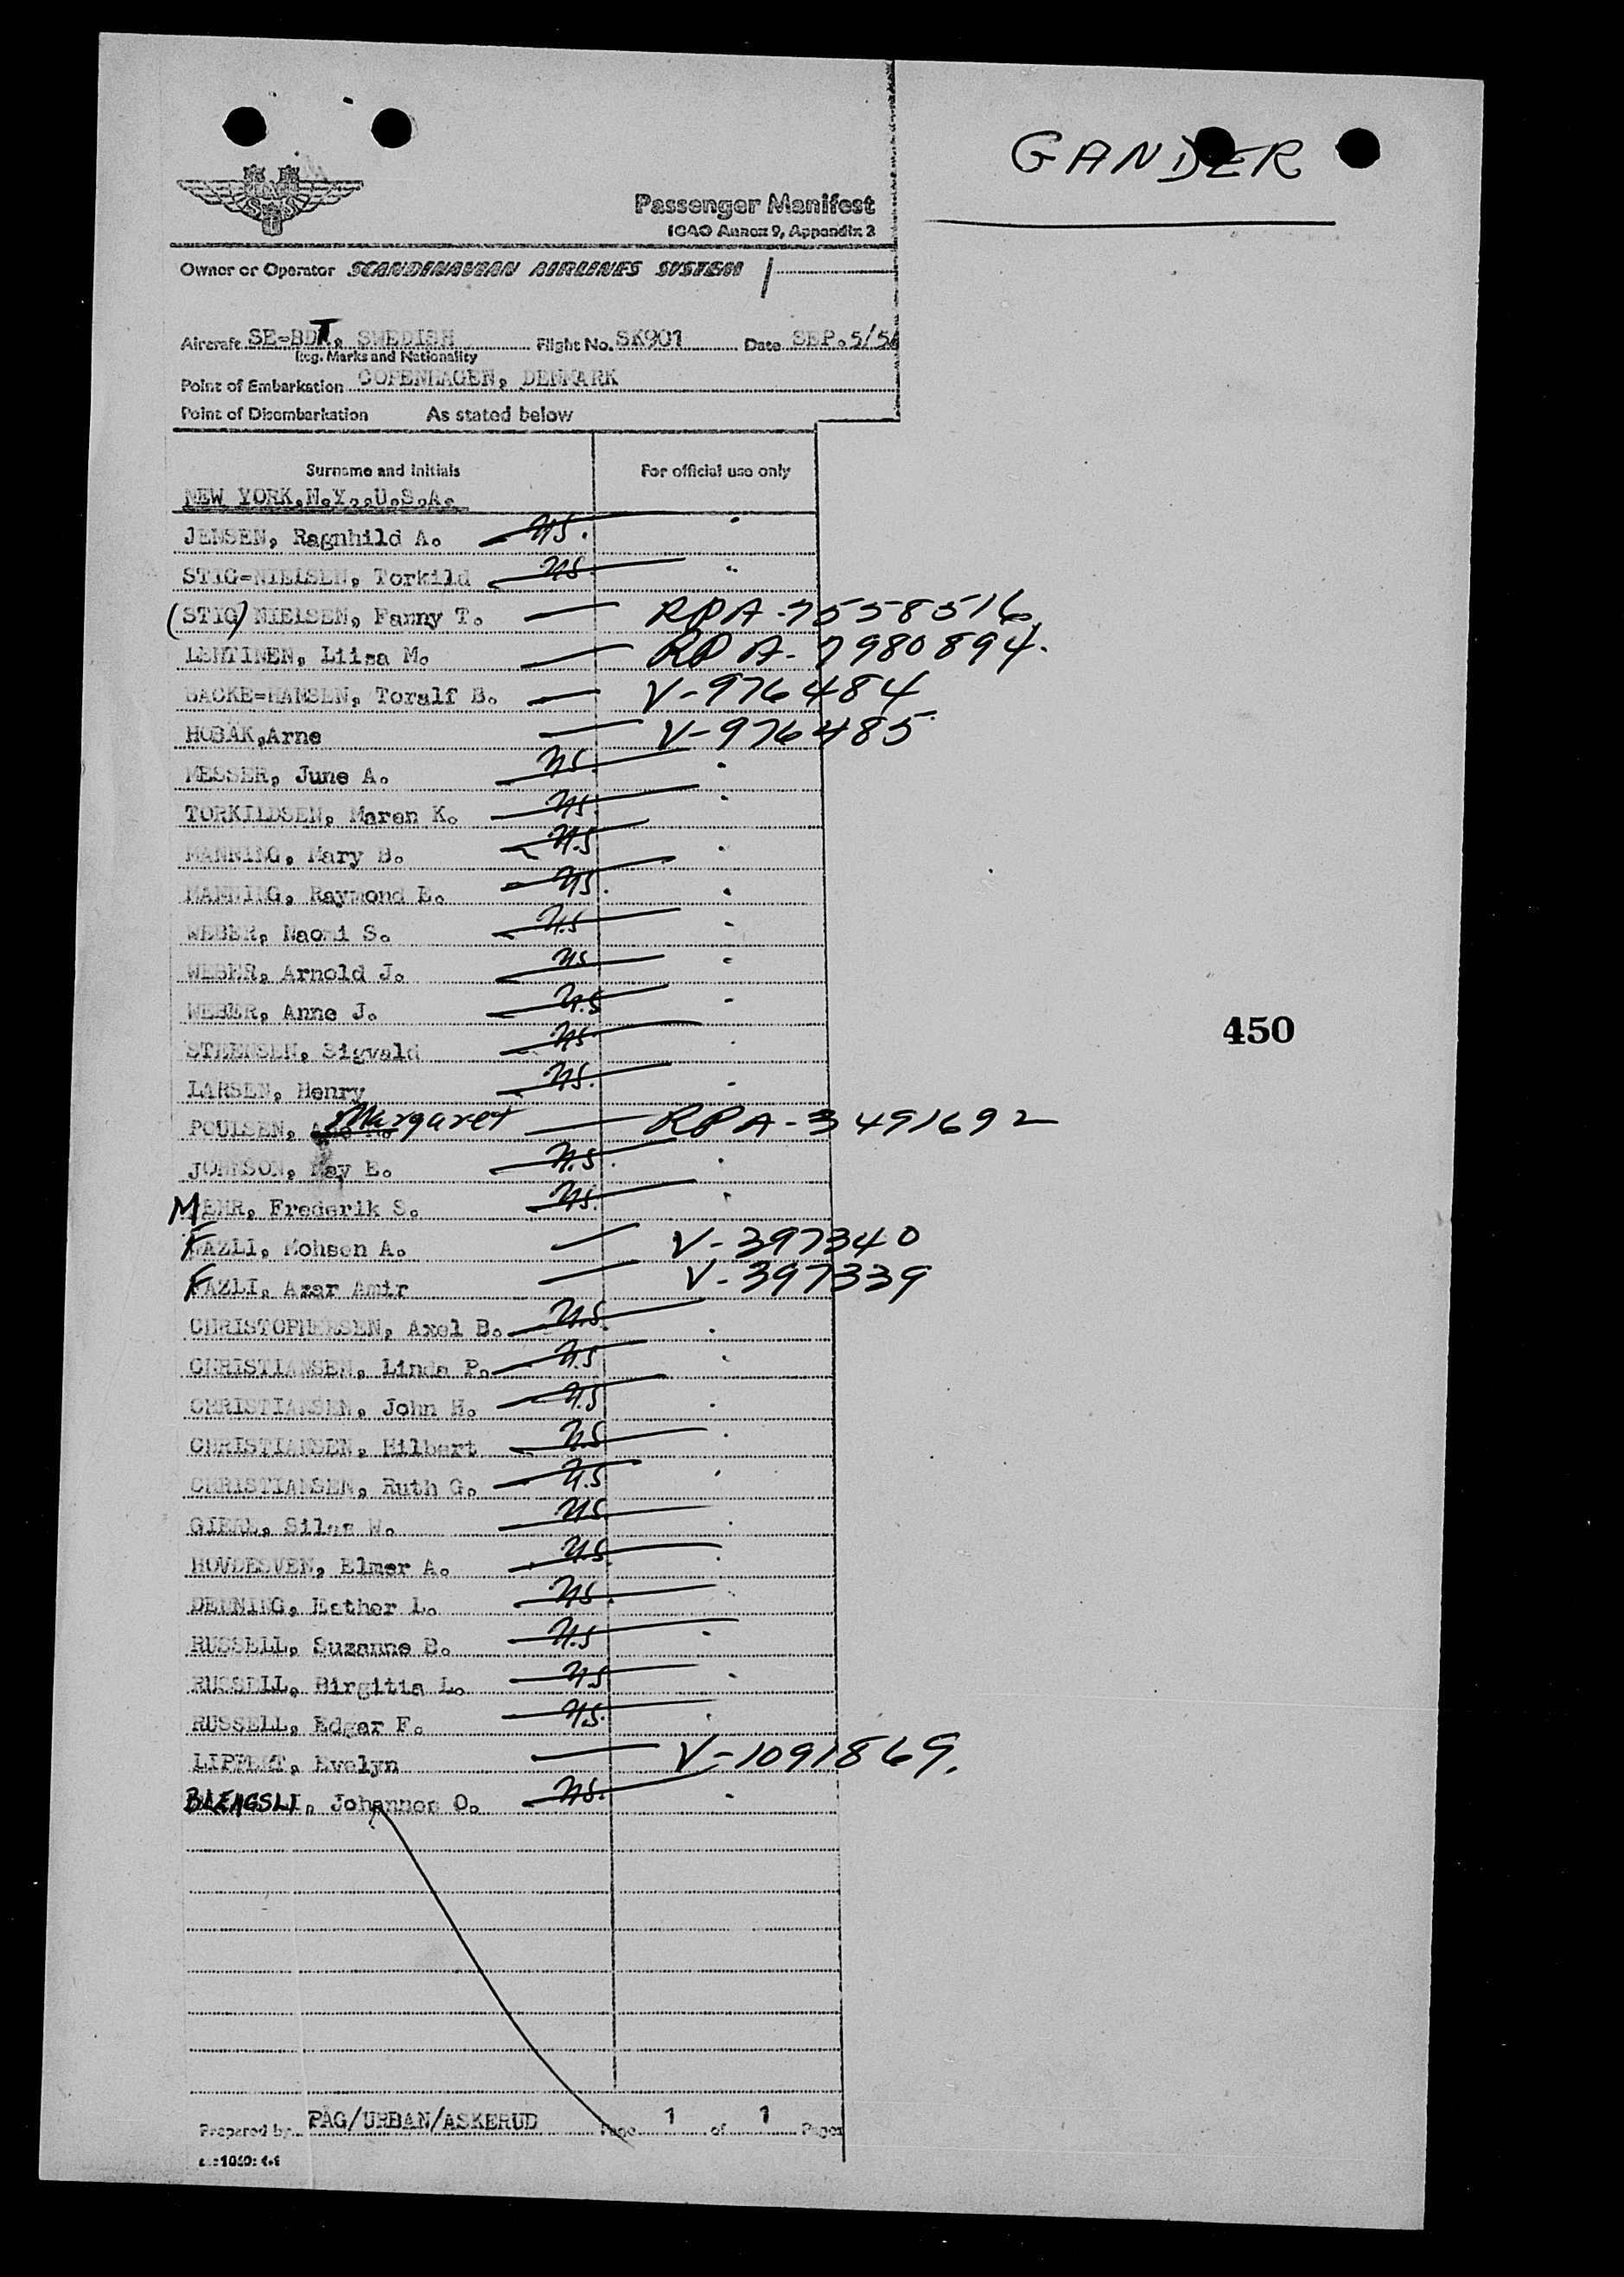 GANDER
SAS
Passenger Manifest
ICAO Annex 9, Appendix 3
Owner or Operator SCANDINAVIAN AIRLINES SYSTEM
Aircraft SE-BDT, SWEDISH Flight No. SK901 Date SEP. 5/5
Reg. Marks and Nationality
Point of Embarkation COPENHAGEN, DENMARK
Point of Disembarkation As stated below
Surname and Initials For official use only
NEW YORK,N.Y.,U.S.A.
JENSEN, Ragnhild A. US.
STIG-NIELSEN, Torkild US.
(STIG) NIELSEN, Fanny T. RPA-7558516
LEHTINEN, Liisa M. RPA-7980894.
BACKE-HANSEN, Toralf B. V-976484
HOBÄK,Arne V-976485
MESSER, June A. US.
TORKILDSEN, Maren K. US.
MANNING, Mary B. U.S
MANNING, Raymond E. US.
WEBER, Naomi S. U.S
WEBER, Arnold J. US
WEBER, Anne J. U.S
STEENSEN, Sigvald US
LARSEN, Henry US.
POULSEN, Margaret RPA-3491692
JOHNSON, May E. U.S.
MEHR, Frederik S. US.
FAZLI, Mohsen A. V-397340
FAZLI, Azar Amir V-397339
CHRISTOPHERSEN, Axel B. U.S.
CHRISTIANSEN, Linda P. U.S
CHRISTIANSEN, John H. U.S
CHRISTIANSEN, Hilbert U.S
CHRISTIANSEN, Ruth G. U.S
Silas W. US.
HOVDESVEN, Elmer A. U.S.
DENNING, Esther L. US.
RUSSELL, Suzanne B. U.S
RUSSELL, Birgitta L. U.S
RUSSELL, Edgar F. U.S.
LIPPERT, Evelyn V-1091869.
Johannes O. US.
450
Prepared by PAG/URBAN/ASKERUD Page 1 of 1 Pages